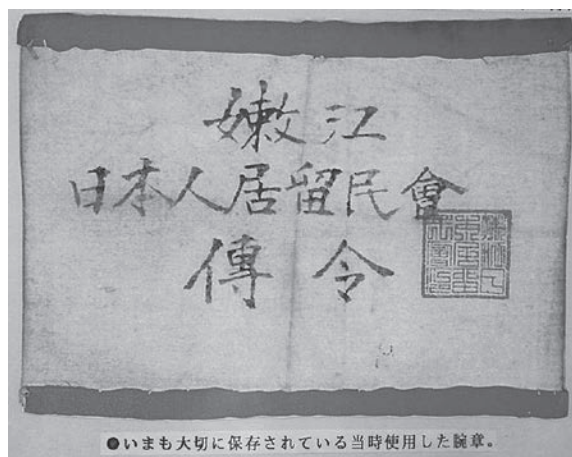 嫩江
日本人居留民會
傳令
●いまも大切に保存されている当時使用した腕章。